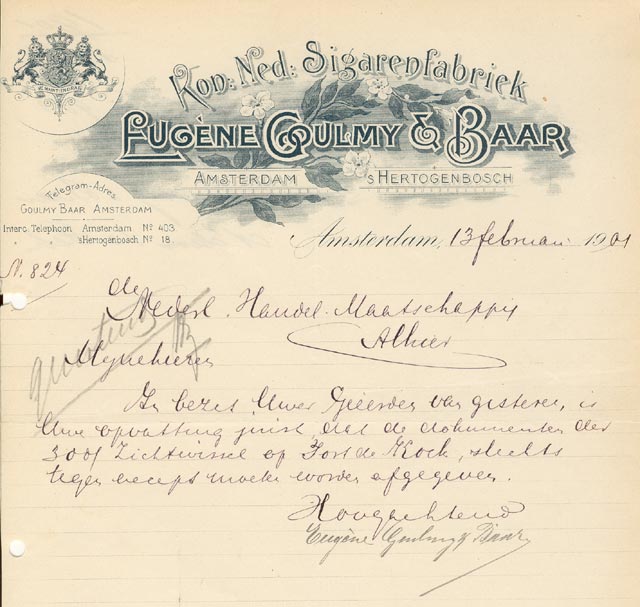 JE MAINTIENDRAI
Kon: Ned: Sigarenfabriek
EUGÈNE GOULMY & BAAR
AMSTERDAM 'S HERTOGENBOSCH
Telegram-Adres
GOULMY BAAR AMSTERDAM
Interc. Telephoon Amsterdam Nº 403
'sHertogenbosch Nº 18
Amsterdam, 13 februari 1901
N. 824
de
Nederl. Handel-Maatschappij
Alhier
Mijneheeren
In bezit Uwer Geëerden van gisteren, is
Uwe opvatting juist, dat de dokumenten der
300f Zichtwissel op Fort de Kock, slechts
tegen recept moeten worden afgegeven.
Hoogachtend
Eugène Goulmy & Baar